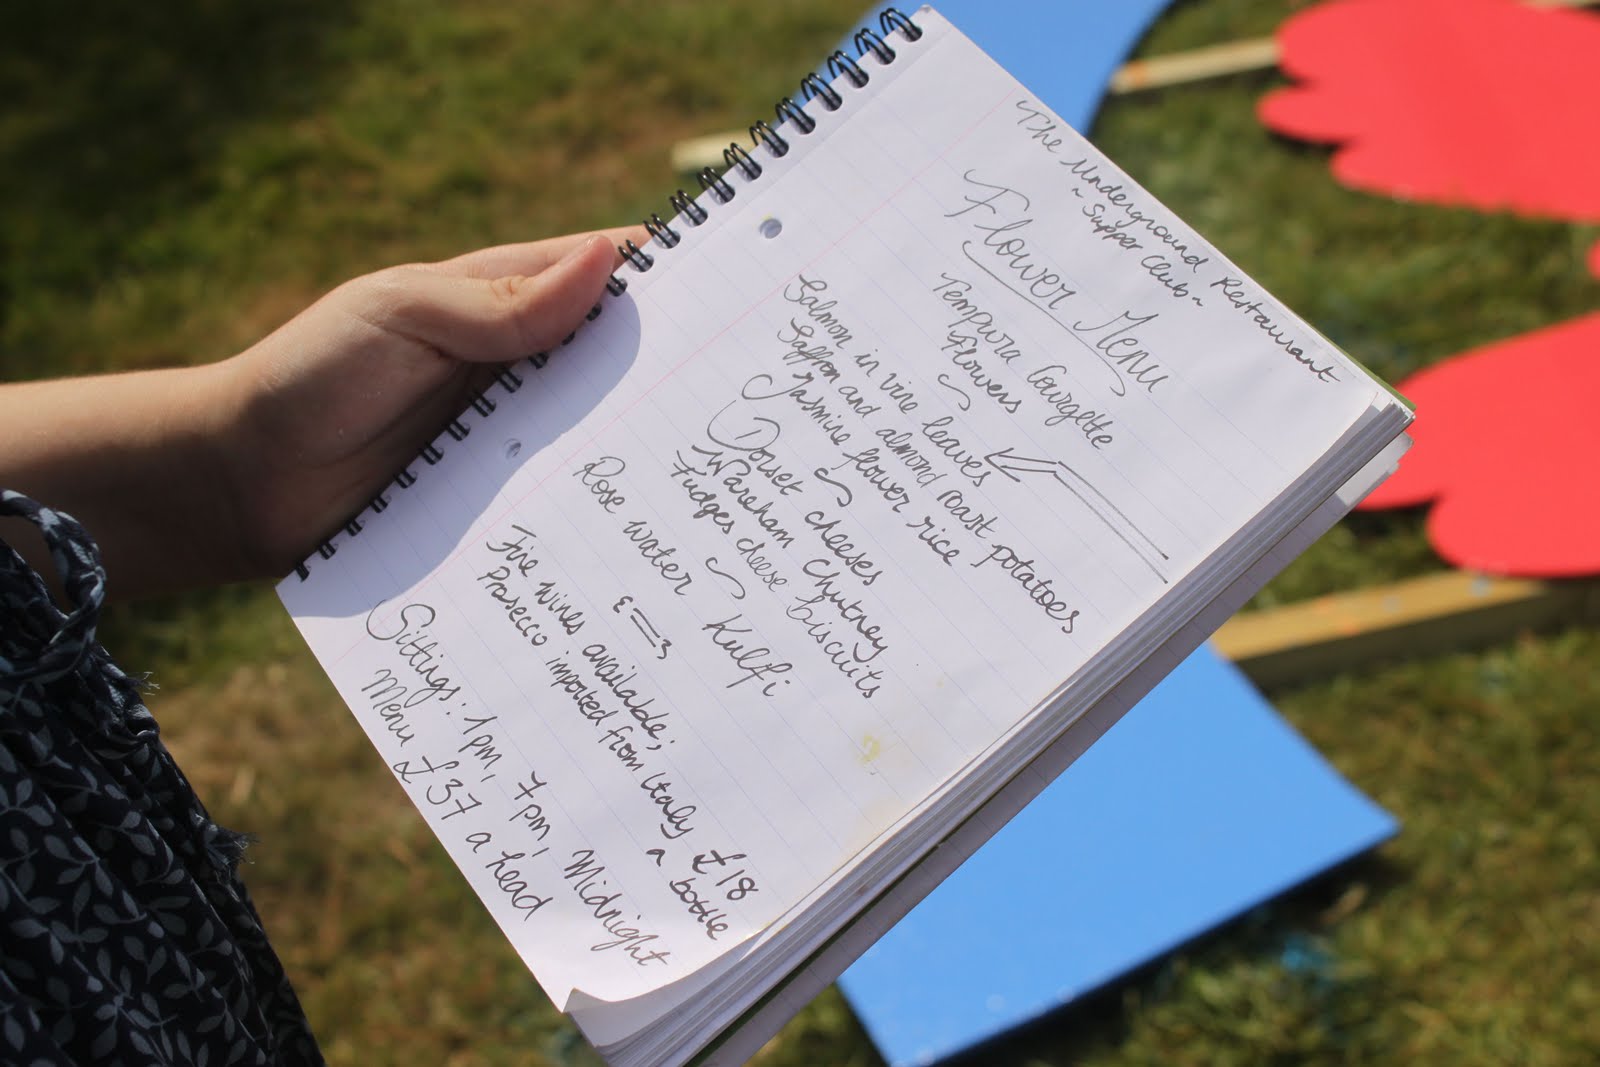 The Underground Restaurant
~Supper Club~
Flower Menu
Tempura Courgette
flowers
Salmon in vine leaves
Saffron and almond roast potatoes
Jasmine flower rice
Dorset cheeses
Wareham chutney
Fudges cheese biscuits
Rose water Kulfi
Fine wines available;
Prosecco imported from Italy £18
a bottle
Sittings: 1pm, 7pm, Midnight
Menu £37 a head